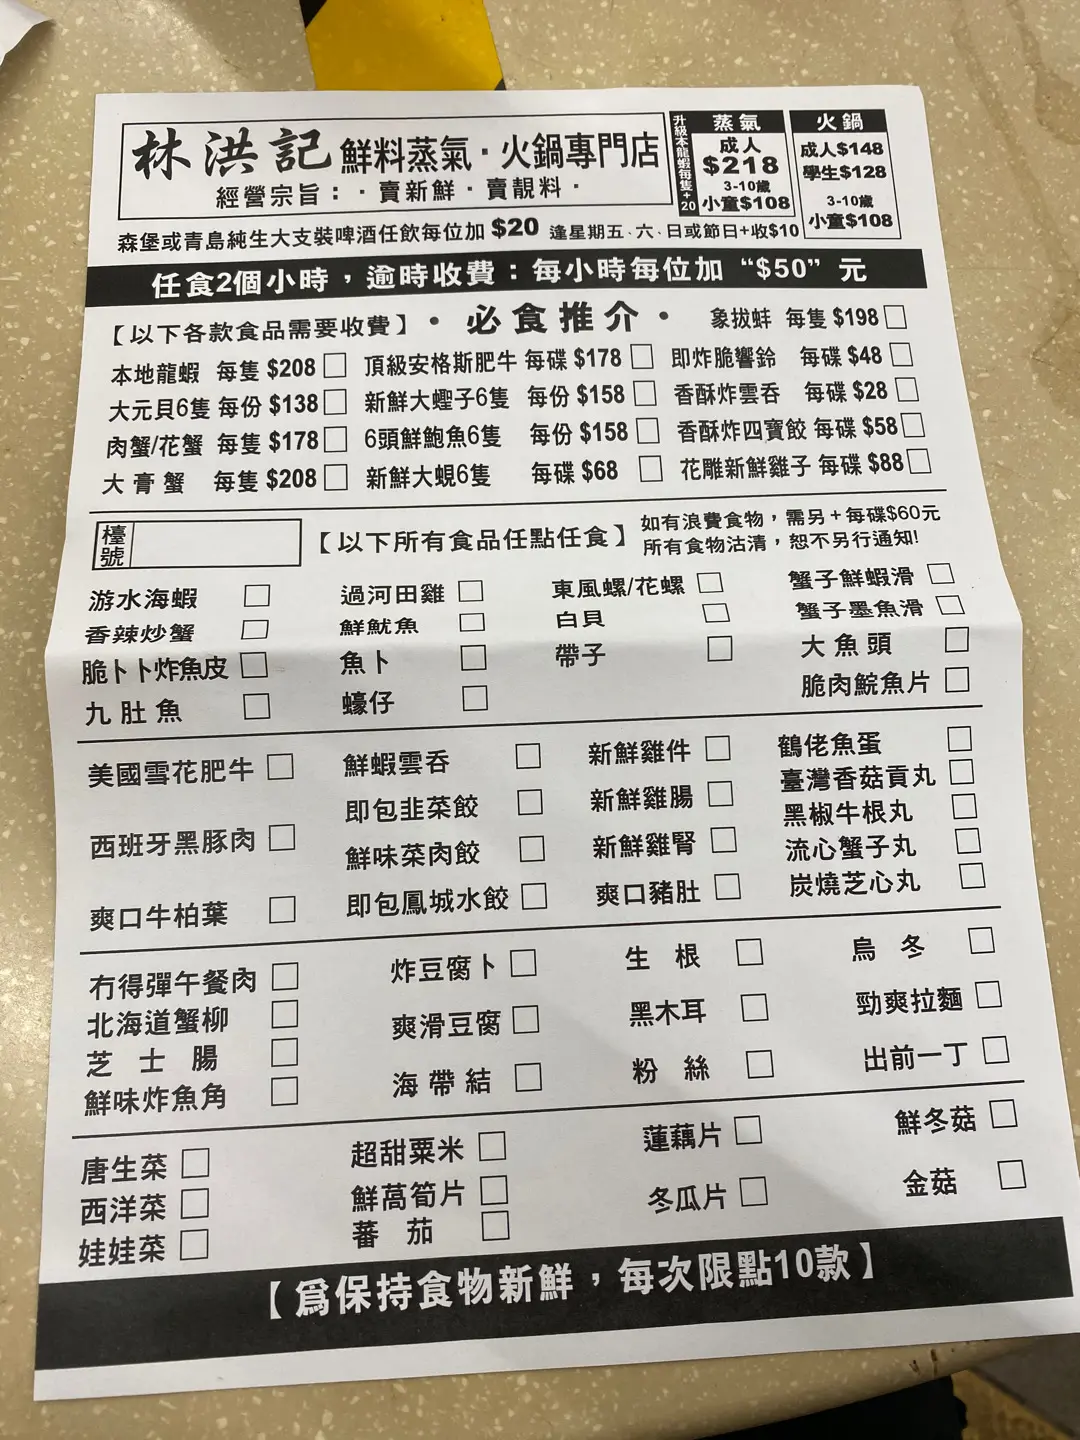 林洪記 鮮料蒸氣·火鍋專門店
經營宗旨：·賣新鮮·賣靚料·
升級本龍蝦每隻+20
蒸氣
成人
$218
3-10歲
小童$108
火鍋
成人$148
學生$128
3-10歲
小童$108
森堡或青島純生大支裝啤酒任飲每位加 $20 逢星期五、六、日或節日+收$10
任食2個小時，逾時收費：每小時每位加“$50”元
【以下各款食品需要收費】·必食推介· 象拔蚌 每隻 $198
本地龍蝦 每隻 $208 頂級安格斯肥牛 每碟 $178 即炸脆響鈴 每碟 $48
大元貝6隻 每份 $138 新鮮大蟶子6隻 每份 $158 香酥炸雲吞 每碟 $28
肉蟹/花蟹 每隻 $178 6頭鮮鮑魚6隻 每份 $158 香酥炸四寶餃 每碟 $58
大膏蟹 每隻 $208 新鮮大蜆6隻 每碟 $68 花雕新鮮雞子 每碟 $88
檯號 【以下所有食品任點任食】
如有浪費食物，需另+每碟$60元
所有食物沽清，恕不另行通知!
游水海蝦 過河田雞 東風螺/花螺 蟹子鮮蝦滑
香辣炒蟹 鮮魷魚 白貝 蟹子墨魚滑
脆卜卜炸魚皮 魚卜 帶子 大魚頭
九肚魚 蠔仔 脆肉鯇魚片
美國雪花肥牛 鮮蝦雲吞 新鮮雞件 鶴佬魚蛋
即包韭菜餃 新鮮雞腸 臺灣香菇貢丸
西班牙黑豚肉 鮮味菜肉餃 新鮮雞腎 黑椒牛根丸
流心蟹子丸
爽口牛柏葉 即包鳳城水餃 爽口豬肚 炭燒芝心丸
冇得彈午餐肉 炸豆腐卜 生根 烏冬
北海道蟹柳 爽滑豆腐 黑木耳 勁爽拉麵
芝士腸 海帶結 粉絲 出前一丁
鮮味炸魚角
唐生菜 超甜粟米 蓮藕片 鮮冬菇
西洋菜 鮮萵筍片 冬瓜片 金菇
娃娃菜 蕃茄
【為保持食物新鮮，每次限點10款】